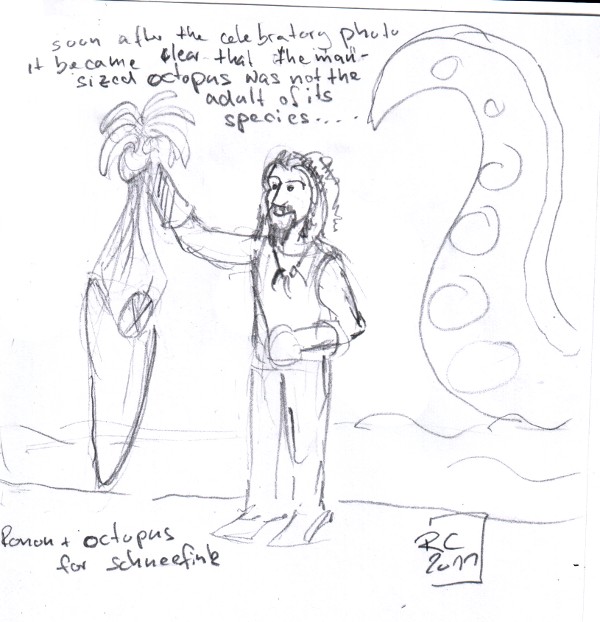 soon after the celebratory photo
it became clear that the man-
sized octopus was not the
adult of its
species.....
Ronon + octopus
for schneefink
RC
2011